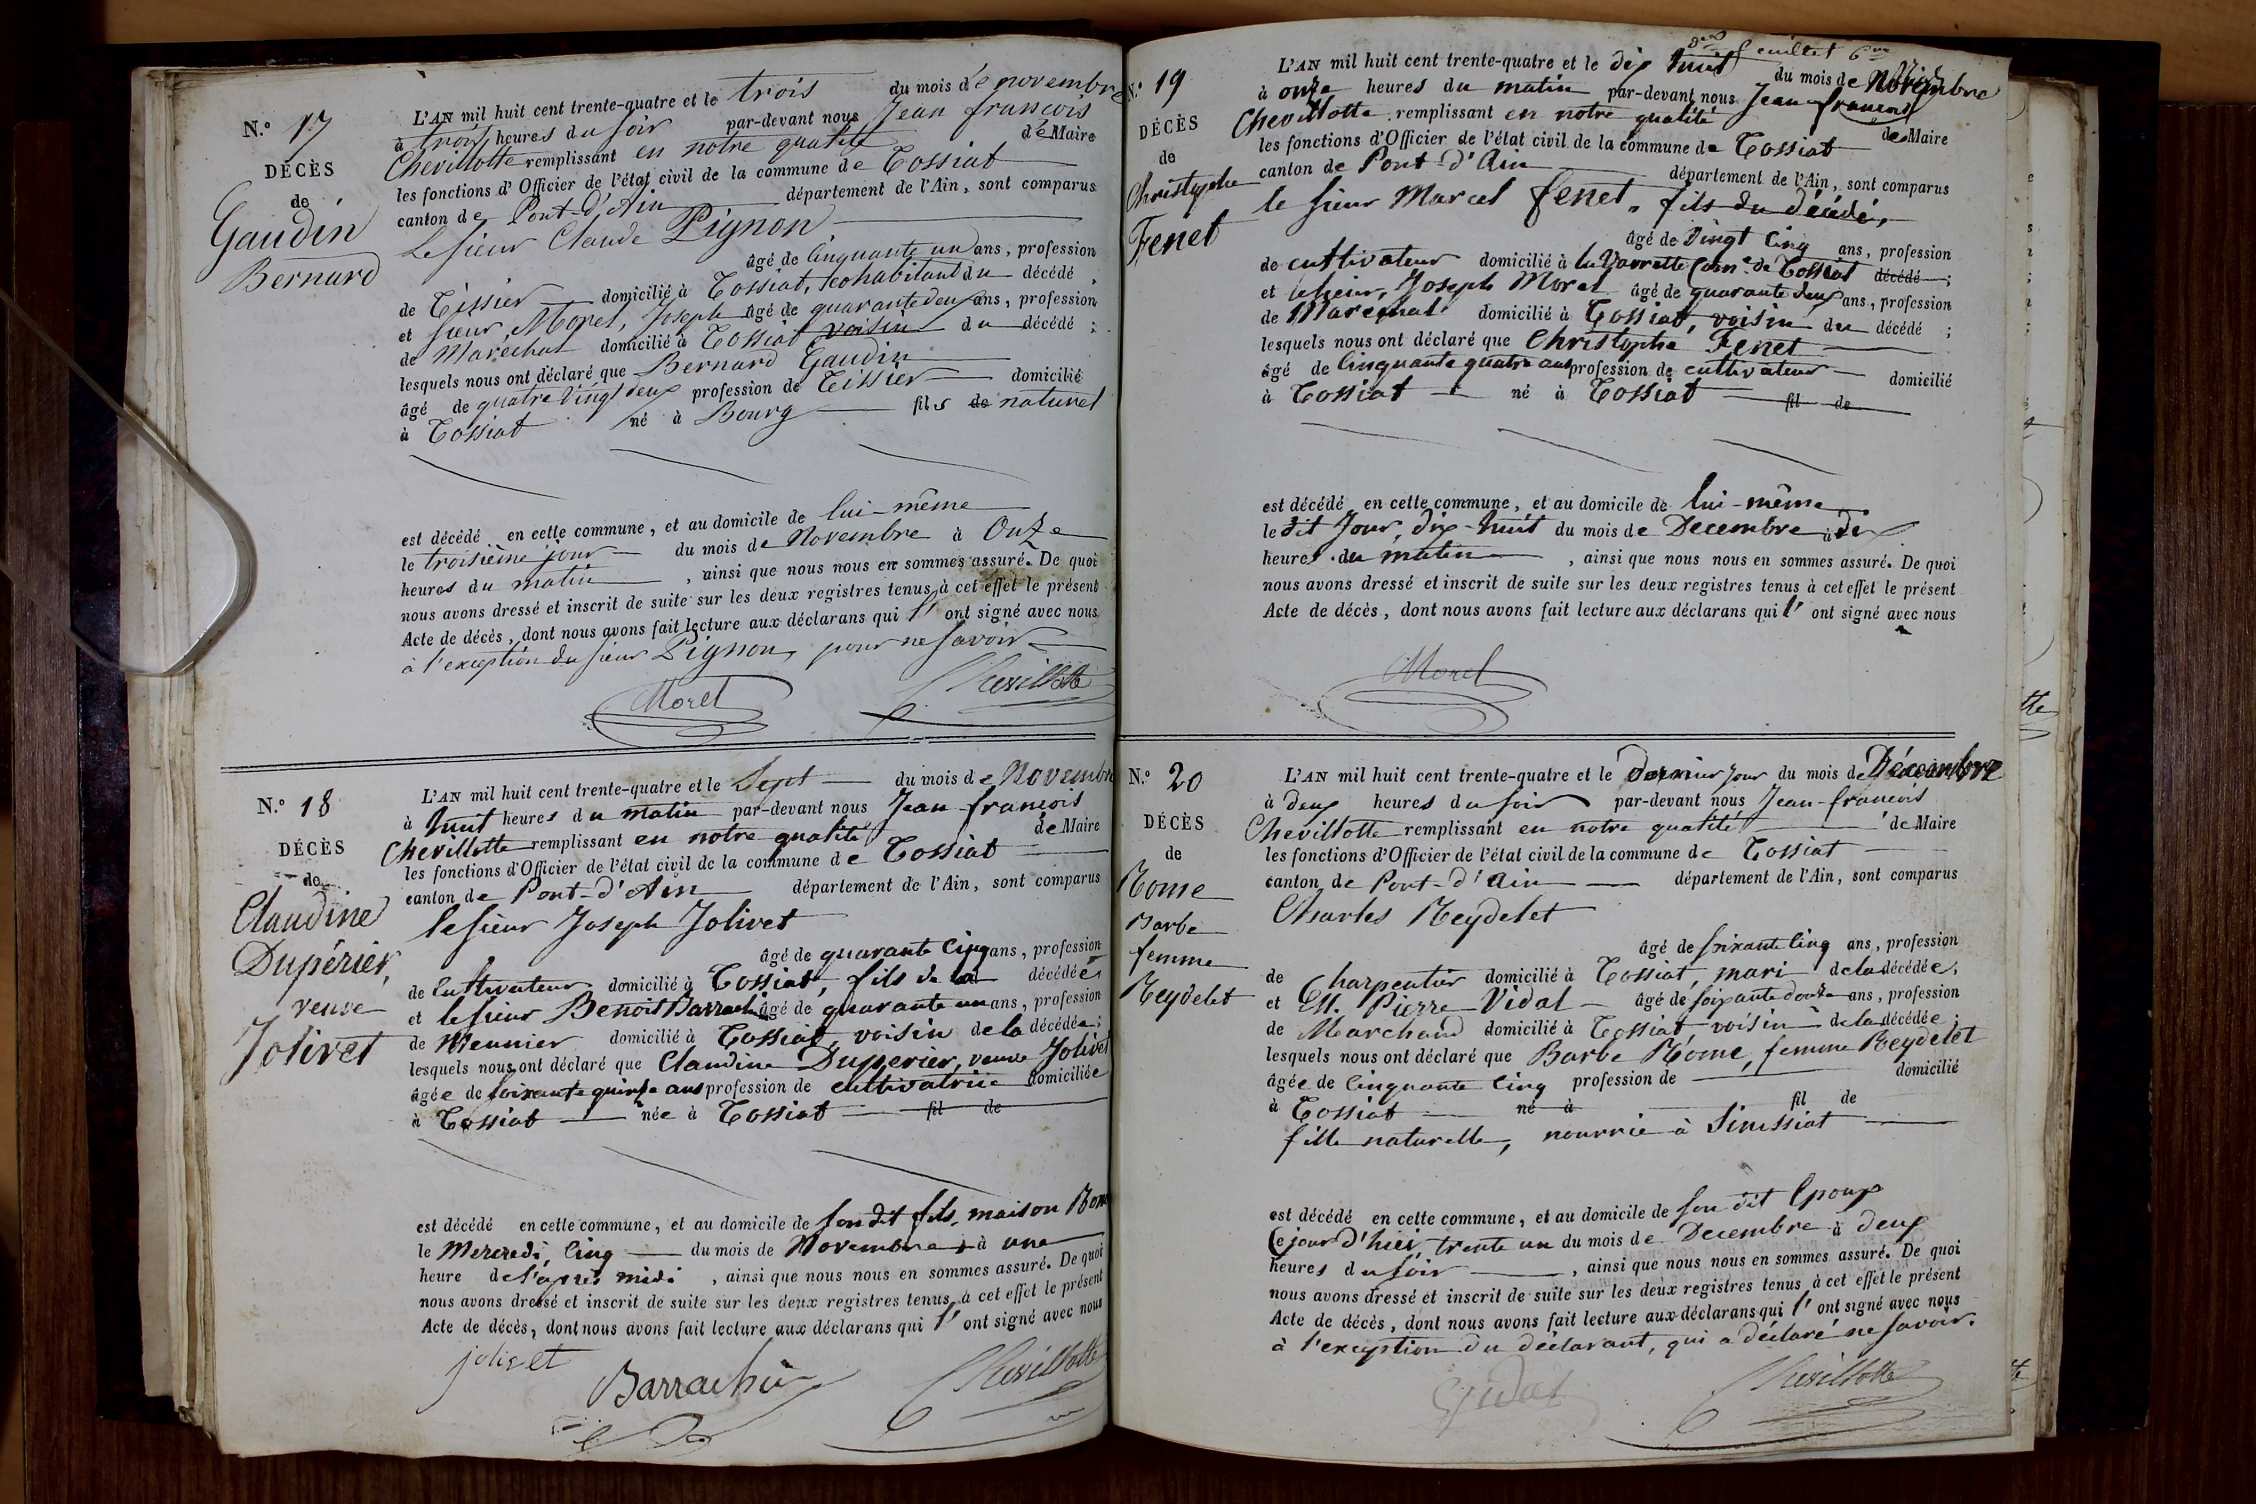 N.º 17
DÉCÈS
de
Gaudin
Bernard
L'AN mil huit cent trente-quatre et le trois du mois de novembre
à trois heures du soir par-devant nous Jean françois
Chevillotte remplissant en notre qualité de Maire
les fonctions d'Officier de l'état civil de la commune de Tossiat
canton de Pont-d'Ain département de l'Ain, sont comparus
Le sieur Claude Pignon
âgé de cinquante un ans, profession
de Tissier domicilié à Tossiat, cohabitant du décédé ;
et sieur Morel, Joseph âgé de quarante deux ans, profession
de Maréchal domicilié à Tossiat voisin du décédé ;
lesquels nous ont déclaré que Bernard Gaudin
âgé de quatre vingt deux profession de Tissier domicilié
à Tossiat né à Bourg fils de naturel
est décédé en cette commune, et au domicile de lui-même
le troisième jour du mois de Novembre à Onze
heures du matin, ainsi que nous nous en sommes assuré. De quoi
nous avons dressé et inscrit de suite sur les deux registres tenus à cet effet le présent
Acte de décès, dont nous avons fait lecture aux déclarans qui l' ont signé avec nous
à l'exception du sieur Pignon, pour ne savoir
Morel Chevillotte
N.º 18
DÉCÈS
de
Claudine
Dupérier,
veuve
Jolivet
L'AN mil huit cent trente-quatre et le Sept du mois de Novembre
à huit heures du matin par-devant nous Jean-françois
Chevillotte remplissant en notre qualité de Maire
les fonctions d'Officier de l'état civil de la commune de Tossiat
canton de Pont-d'Ain département de l'Ain, sont comparus
le sieur Joseph Jolivet
âgé de quarante cinq ans, profession
de Cultivateur domicilié à Tossiat, fils de la décédée,
et le sieur Benoit Barrachin âgé de quarante un ans, profession
de Meunier domicilié à Tossiat, voisin de la décédée ;
lesquels nous ont déclaré que Claudine Duperier, veuve Jolivet
âgée de soixante quinze ans profession de cultivatrice domiciliée
à Tossiat née à Tossiat fil de
est décédé en cette commune, et au domicile de son dit fils, maison
le Mercredi, cinq du mois de Novembre à une
heure de l'après midi, ainsi que nous nous en sommes assuré. De quoi
nous avons dressé et inscrit de suite sur les deux registres tenus à cet effet le présent
Acte de décès, dont nous avons fait lecture aux déclarans qui l' ont signé avec nous
jolivet
Barrachin Chevillotte
feuillet 6me
N.º 19
DÉCÈS
de
Christophe
Fenet
L'AN mil huit cent trente-quatre et le dix huit du mois de
à onze heures du matin par-devant nous Jean-françois
Chevillotte remplissant en notre qualité de Maire
les fonctions d'Officier de l'état civil de la commune de Tossiat
canton de Pont-d'Ain département de l'Ain, sont comparus
le sieur Marcel fenet, fils du décédé,
âgé de Vingt Cinq ans, profession
de cultivateur domicilié à la Com.e de Tossiat décédé ;
et le sieur, Joseph Morel âgé de quarante deux ans, profession
de Maréchal domicilié à Tossiat, voisin du décédé ;
lesquels nous ont déclaré que Christophe Fenet
âgé de Cinquante quatre ans profession de cultivateur domicilié
à Tossiat né à Tossiat fil de
est décédé en cette commune, et au domicile de lui-même
le dit Jour, dix-huit du mois de Decembre à dix
heures du matin, ainsi que nous nous en sommes assuré. De quoi
nous avons dressé et inscrit de suite sur les deux registres tenus à cet effet le présent
Acte de décès, dont nous avons fait lecture aux déclarans qui l' ont signé avec nous
Morel
N.º 20
DÉCÈS
de
Rome
Barbe
femme
Reydelet
L'AN mil huit cent trente-quatre et le dernier jour du mois de Décembre
à deux heures du soir par-devant nous Jean-françois
Chevillotte remplissant en notre qualité de Maire
les fonctions d'Officier de l'état civil de la commune de Tossiat
canton de Pont-d'Ain département de l'Ain, sont comparus
Charles Reydelet
âgé de soixante Cinq ans, profession
de Charpentier domicilié à Tossiat, mari de la décédée,
et M. Pierre Vidal âgé de soixante douze ans, profession
de Marchand domicilié à Tossiat voisin de la décédée ;
lesquels nous ont déclaré que Barbe Rome, femme Reydelet
âgée de Cinquante Cinq profession de domicilié
à Tossiat né à fil de
fille naturelle, nourrie à Simissiat
est décédé en cette commune, et au domicile de son dit Epoux
Cejour d'hier, trente un du mois de Decembre à deux
heures du soir, ainsi que nous nous en sommes assuré. De quoi
nous avons dressé et inscrit de suite sur les deux registres tenus à cet effet le présent
Acte de décès, dont nous avons fait lecture aux déclarans qui l' ont signé avec nous
à l'exception du déclarant, qui a déclaré ne savoir.
Vidal Chevillotte